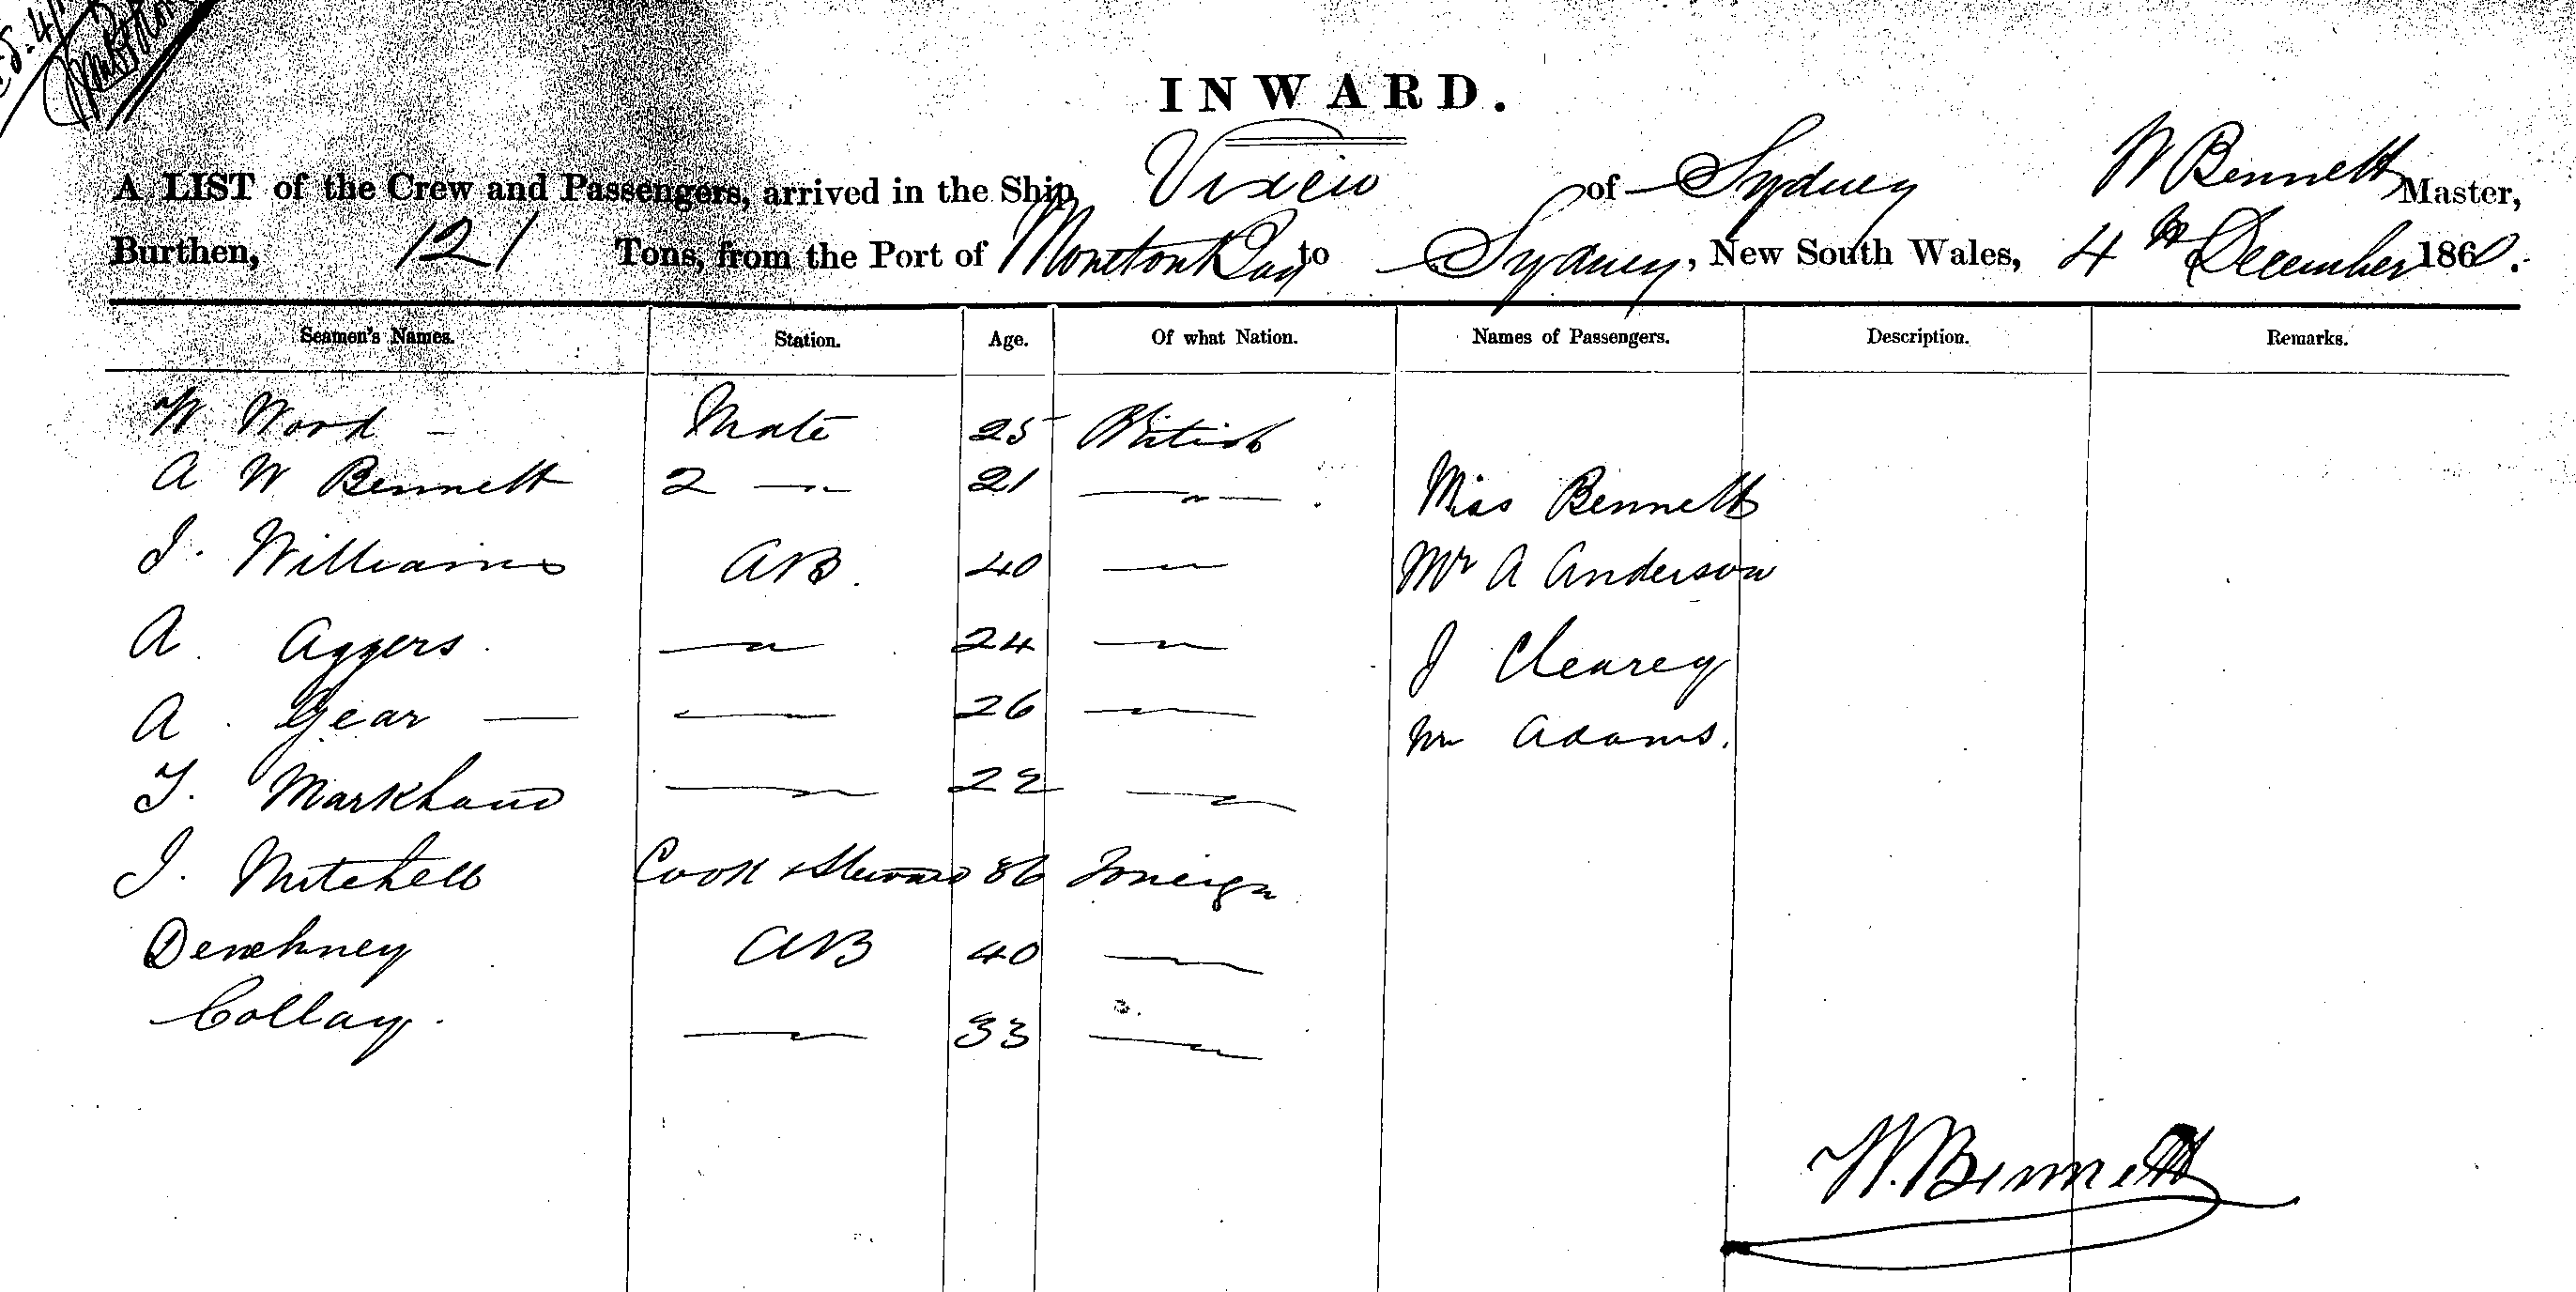 INWARD.
A LIST of the Crew and Passengers, arrived in the Ship Vixen of Sydney W Bennett Master,
Burthen, 121 Tons, from the Port of Moreton Bay to Sydney, New South Wales, 4th December 1860.
Seamen's Names. Station. Age. Of what Nation. Names of Passengers. Description. Remarks.
W Wood - Mate 25 British
A W Bennett 2 —"— 21 —"— Miss Bennett
J. Williams AB. 40 —"— Mr A Anderson
A. Aggers. —"— 24 —"— J Clearey
A. Gear — —"— 26 —"— Mr Adams.
T. Markham —"— 22 —"—
J. Mitchell Cook & Steward 36 Foreign
AB 40 —"—
Collay. —"— 33 —"—
W. Bennett